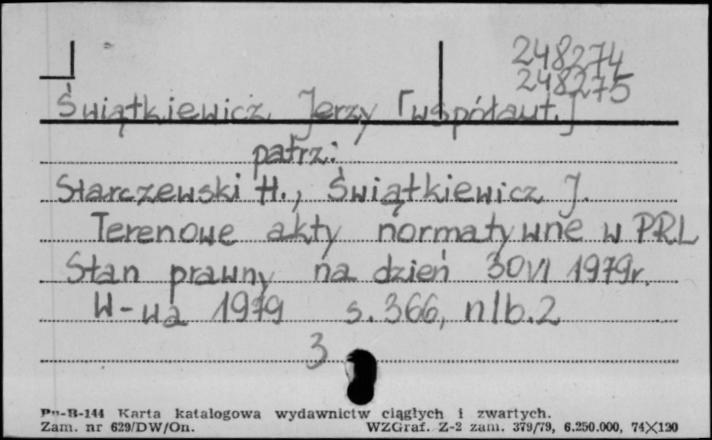 248274
248275
Świątkiewicz Jerzy [współaut.]
patrz:
Starczewski H., Świątkiewicz J.
Terenowe akty normatywne w PRL
Stan prawny na dzień 30 VI 1979r.
W-wa 1979 s. 366, nlb. 2
3
Pu-B-144 Karta katalogowa wydawnictw ciągłych i zwartych.
Zam. nr 629/DW/On. WZGraf. Z-2 zam. 379/79, 6.250.000, 74×120